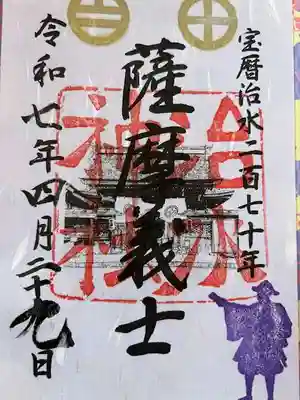 宝暦治水二百七十年
薩摩義士
治水神社
令和七年四月二十九日